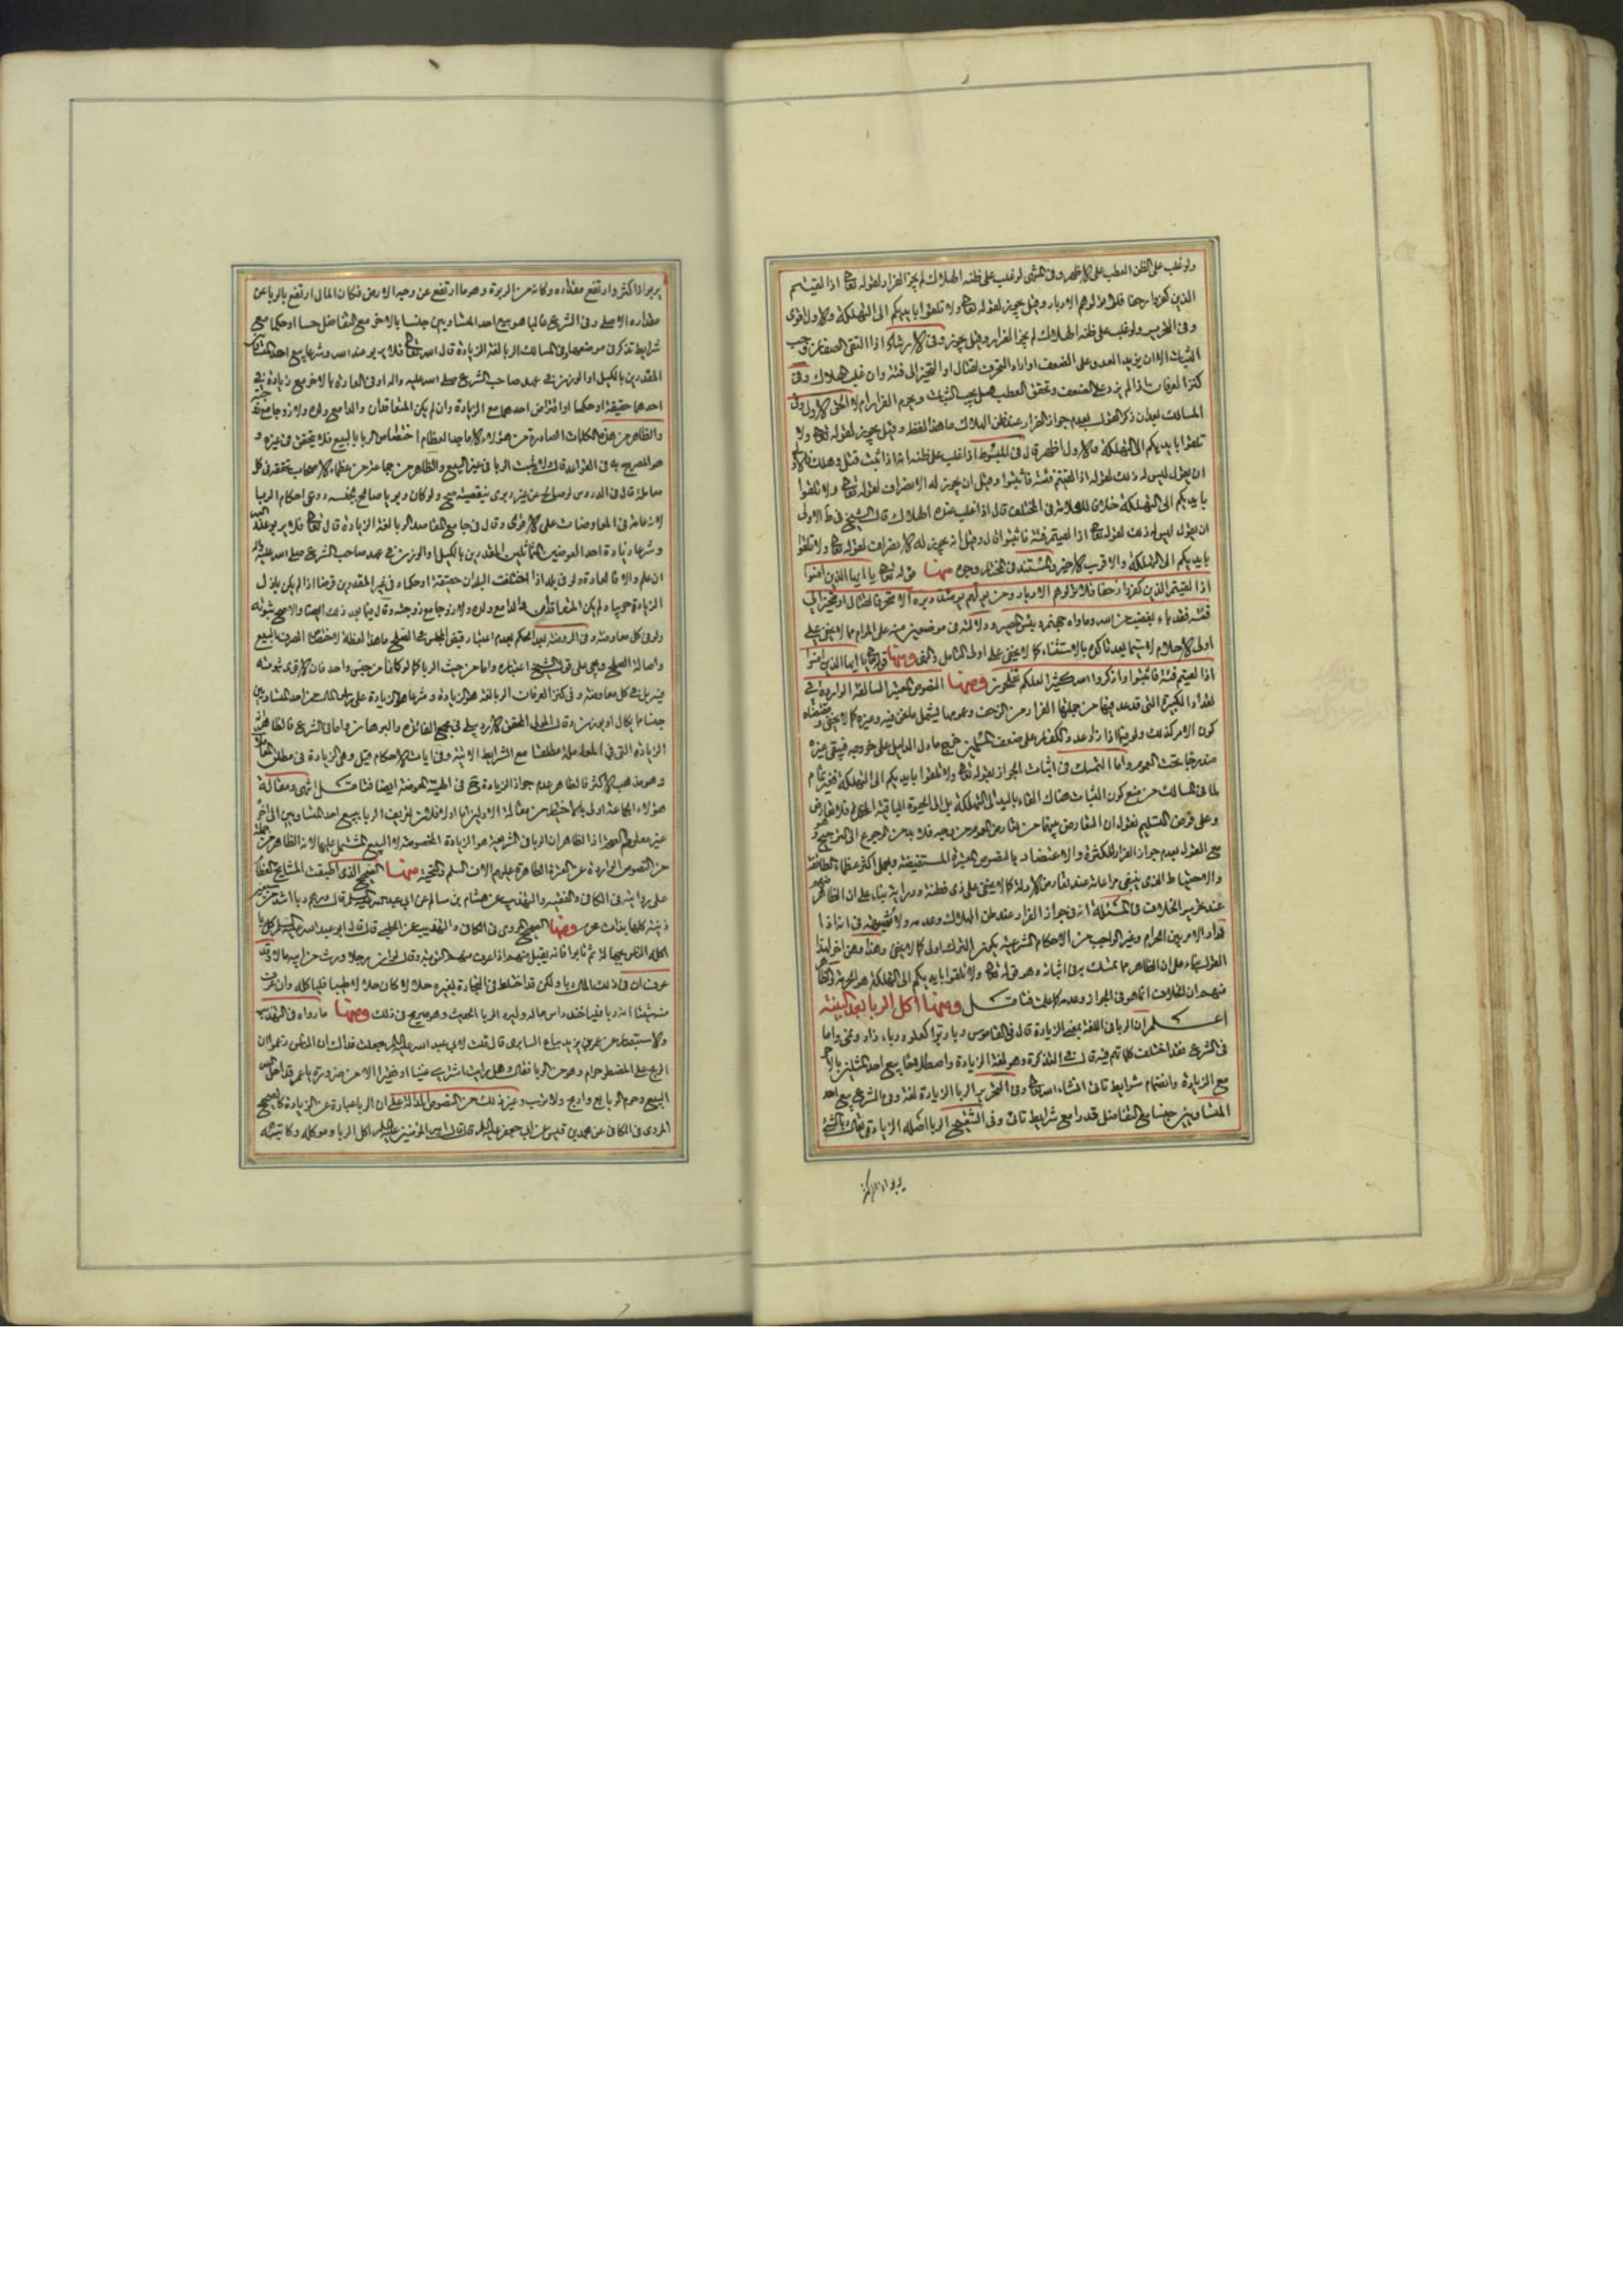 ولو غلب على الظن العطب على الاظهر وفى المنتهى لو غلب على ظنه الهلاك لم يجز الفرار لقوله تعالى اذا لقيتم
الذين كفروا زحفا فلا تولوهم الادبار وقيل يجوز لقوله تعالى ولا تلقوا بايديكم الى التهلكة والاول اقوى
وفى التحرير ولو غلب على ظنه الهلاك لم يجز الفرار وقيل يجوز وفى الارشاد اذا التقى الصفان وجب
الثبات الا ان يزيد العدو على الضعف او اراد التحرف لقتال او التحيز الى فئة وان غلب الهلاك وفى
كنز العرفان اذا لم يزد على الضعف وتحقق العطب هل يجب الثبات ويحرم الفرار ام لا الحق الاول وفى
المسالك بعد ان ذكر القول بعدم جواز الفرار عند ظن الهلاك ما هذا لفظه وقيل يجوز لقوله تعالى ولا
تلقوا بايديكم الى التهلكة والاول اظهر قال فى المبسوط اذا غلب على ظنه انه اذا ثبت قتل وهلك فالاولى
ان يقول ليس له ذلك لقوله اذا لقيتم فئة فاثبتوا وقيل ان يجوز له الانصراف لقوله تعالى ولا تلقوا
بايديكم الى التهلكة خلافا للعلامة فى المختلف قال اذا غلب عنده الهلاك قال الشيخ فى ط الاولى
ان يقول ليس له ذلك لقوله تعالى اذا لقيتم فئة فاثبتوا قال وقيل انه يجوز له الانصراف لقوله تعالى ولا تلقوا
بايديكم الى التهلكة والاقرب الاخير والمستند فى المختار وجوه منها قوله تعالى يا ايها الذين امنوا
اذا لقيتم الذين كفروا زحفا فلا تولوهم الادبار ومن يولهم يومئذ دبره الا متحرفا لقتال او متحيزا الى
فئة فقد باء بغضب من الله وماواه جهنم وبئس المصير ودلالته فى موضعين منه على المرام مما لا يخفى على
اولى الاحلام لا سيما بعد تاكده بالاستثناء كما لا يخفى على اولى التامل والنهى ومنها قوله تعالى يا ايها الذين امنوا
اذا لقيتم فئة فاثبتوا واذكروا الله كثيرا لعلكم تفلحون ومنها النصوص الكثيرة السالفة الواردة فى
تعداد الكبيرة التى قد عد فيها من جملتها الفرار من الزحف وعمومها يشمل ما نحن فيه وغيره كما لا يخفى ومقتضاه
كون الامر كذلك ولو فيما اذا زاد عدد الكفار على ضعف المسلمين خرج ما دل الدليل على خروجه فيبقى غيره
مندرجا تحت العموم واما التمسك فى اثبات الجواز بقوله تعالى ولا تلقوا بايديكم الى التهلكة فغير تام
لما فى المسالك من منع كون الثبات هناك القاء باليد الى التهلكة بل الى الحيوة الباقية الدائم فلا تعارض
وعلى فرض التسليم نقول ان التعارض بينهما من تعارض العموم من وجه فلا بد من الرجوع الى الترجيح وهو
مع القول بعدم جواز الفرار للكثرة والاعتضاد بالنصوص الكثيرة المستفيضة وعمل اكثر عظماء الطائفة
والاحتياط الذى ينبغى مراعاته عند تعارض الادلة كما لا يخفى على ذى فطنة ودراية بناء على ان الظاهر منهم
عند تحرير الخلاف فى المسئلة انه فى جواز الفرار عند ظن الهلاك وعدمه ولا شبهة فى انه اذا
دار الامر بين الحرام وغير الواجب من الاحكام الشرعية يكون الترك اولى كما لا يخفى وهذا وهن اخر لهذا
القول بناء على ان الظاهر مما تمسك به فى اثباته وهو قوله تعالى ولا تلقوا بايديكم الى التهلكة هو الحرمة والظاهر
منهم ان الخلاف انما هو فى الجواز وعدمه كما علمت فتامل ومنها اكل الربا بعد البينة
اعلم ان الربا فى اللغة بمعنى الزيادة قال فى القاموس ربا ربوا كعلو ورباء زاد ونمى واما
فى الشرع فقد اختلفت كلماتهم فيه قال فى التذكرة وهو لغة الزيادة واصطلاحا بيع احد المثلين بالاخر
مع الزيادة وانضمام شرايط تاتى انشاء الله تعالى وفى التحرير الربا الزيادة لغة وفى الشرع بيع احد
المتساويين جنسا مع التفاضل قدرا مع شرايط تاتى وفى التنقيح الربا اصله الزيادة يقال ربا الشئ
يربو اذا كثر
يربو اذا كثر وارتفع مقداره وكانه من الربوة وهو ما ارتفع عن وجه الارض فكان المال ارتفع بالربا عن
مقداره الاصلى وفى الشرع غالبا هو بيع احد المتساويين جنسا بالاخر مع التفاضل حسا او حكما مع
شرايط تذكر فى موضعها وفى المسالك الربا لغة الزيادة قال الله تعالى فلا يربو عند الله وشرعا بيع احد المتماثلين
المقدرين بالكيل او الوزن فى عهد صاحب الشرع صلى الله عليه واله او فى العادة بالاخر مع زيادة فى
احدهما حقيقة او حكما او اقتراض احدهما مع الزيادة وان لم يكن المتعاقدان والدا مع ولده ولا زوجا مع زوجته
والظاهر من هذه الكلمات الصادرة من هؤلاء الاماجد العظام اختصاص الربا بالبيع فلا يتحقق فى غيره و
هو المصرح به فى القواعد قال ولا يثبت الربا فى غير البيع والظاهر من جماعة من عظماء الاصحاب تحققه فى كل
معاملة قال فى الدروس
لانه عامة فى المعاوضات على الاقوى وقال فى جامع المقاصد الربا لغة الزيادة قال تعالى فلا يربو عند الله
وشرعا زيادة احد العوضين المتماثلين المقدرين بالكيل او الوزن فى عهد صاحب الشرع صلى الله عليه واله
ان علم والا فالعادة ولو فى بلد اذا اختلفت البلدان حقيقة او حكما وفى غير المقدرين قرضا اذا لم يكن باذل
الزيادة حربيا ولم يكن المتعاقدان والدا مع ولده ولا زوجا مع زوجته وقال فيما بعد ذلك ايضا والاصح ثبوته
ولو فى كل معاوضة وفى الروضة
واصالة الصلح
فيه بل فى كل معاوضة وفى كنز العرفان الربا لغة هو الزيادة وشرعا هو الزيادة على راس المال من احد المتساويين
جنسا مما يكال او يوزن وقال المولى المحقق الاردبيلى فى مجمع الفائدة والبرهان واما فى الشرع فالظاهر انه
الزيادة التى فى المعاملة مطلقا مع الشرايط الاتية وفى ايات الاحكام قيل وهى الزيادة فى مطلق المعاملات
وهو مذهب الاكثر فالظاهر عدم جواز الزيادة فى الهبة المعوضة ايضا فتامل انتهى ومقالة
هؤلاء الجماعة اولى بالاختيار من مقالة الاولين اما اولا فلان تعريف الربا ببيع احد المتساويين الى اخره
غير معلوم الصحة اذ الظاهر ان الربا فى الشريعة هو الزيادة المخصوصة لا البيع المشتمل عليها لانه الظاهر من جملة
من النصوص الواردة عن العترة الطاهرة عليهم الاف السلم والتحية منها الصحيح الذى اطبقت المشايخ العظام
على روايته فى الكافى والفقيه والتهذيب عن هشام بن سالم عن ابى عبد الله عليه السلم قال درهم ربا اشد من سبعين
زنية كلها بذات محرم ومنها الصحيح المروى فى الكافى والتهذيب عن الحلبى قال قال ابو عبد الله عليه السلم كل ربا
اكله الناس بجهالة ثم تابوا فانه يقبل منهم اذا عرف منهم التوبة وقال لو ان رجلا ورث من ابيه مالا وقد
عرف ان فى ذلك المال ربا ولكن قد اختلط فى التجارة بغيره حلالا كان حلالا طيبا فلياكله وان عرف
منه شيئا انه ربا فلياخذ راس ماله وليرد الربا الحديث وهو صريح فى ذلك ومنها ما رواه فى التهذيب
والاستبصار عن عمر بن يزيد بياع السابرى قال قلت لابى عبد الله عليه السلم جعلت فداك ان الناس زعموا ان
الربح على المضطر حرام وهو من الربا فقال هل رايت احدا اشترى غنيا او فقيرا الا من ضرورة يا عمر قد احل الله
البيع وحرم الربا بع واربح ولا ترب وغير ذلك من النصوص الدالة على ان الربا عبارة عن الزيادة كالصحيح
المروى فى الكافى عن محمد بن قيس عن ابى جعفر عليه السلم قال قال امير المؤمنين عليه السلم اكل الربا وموكله وكاتبه